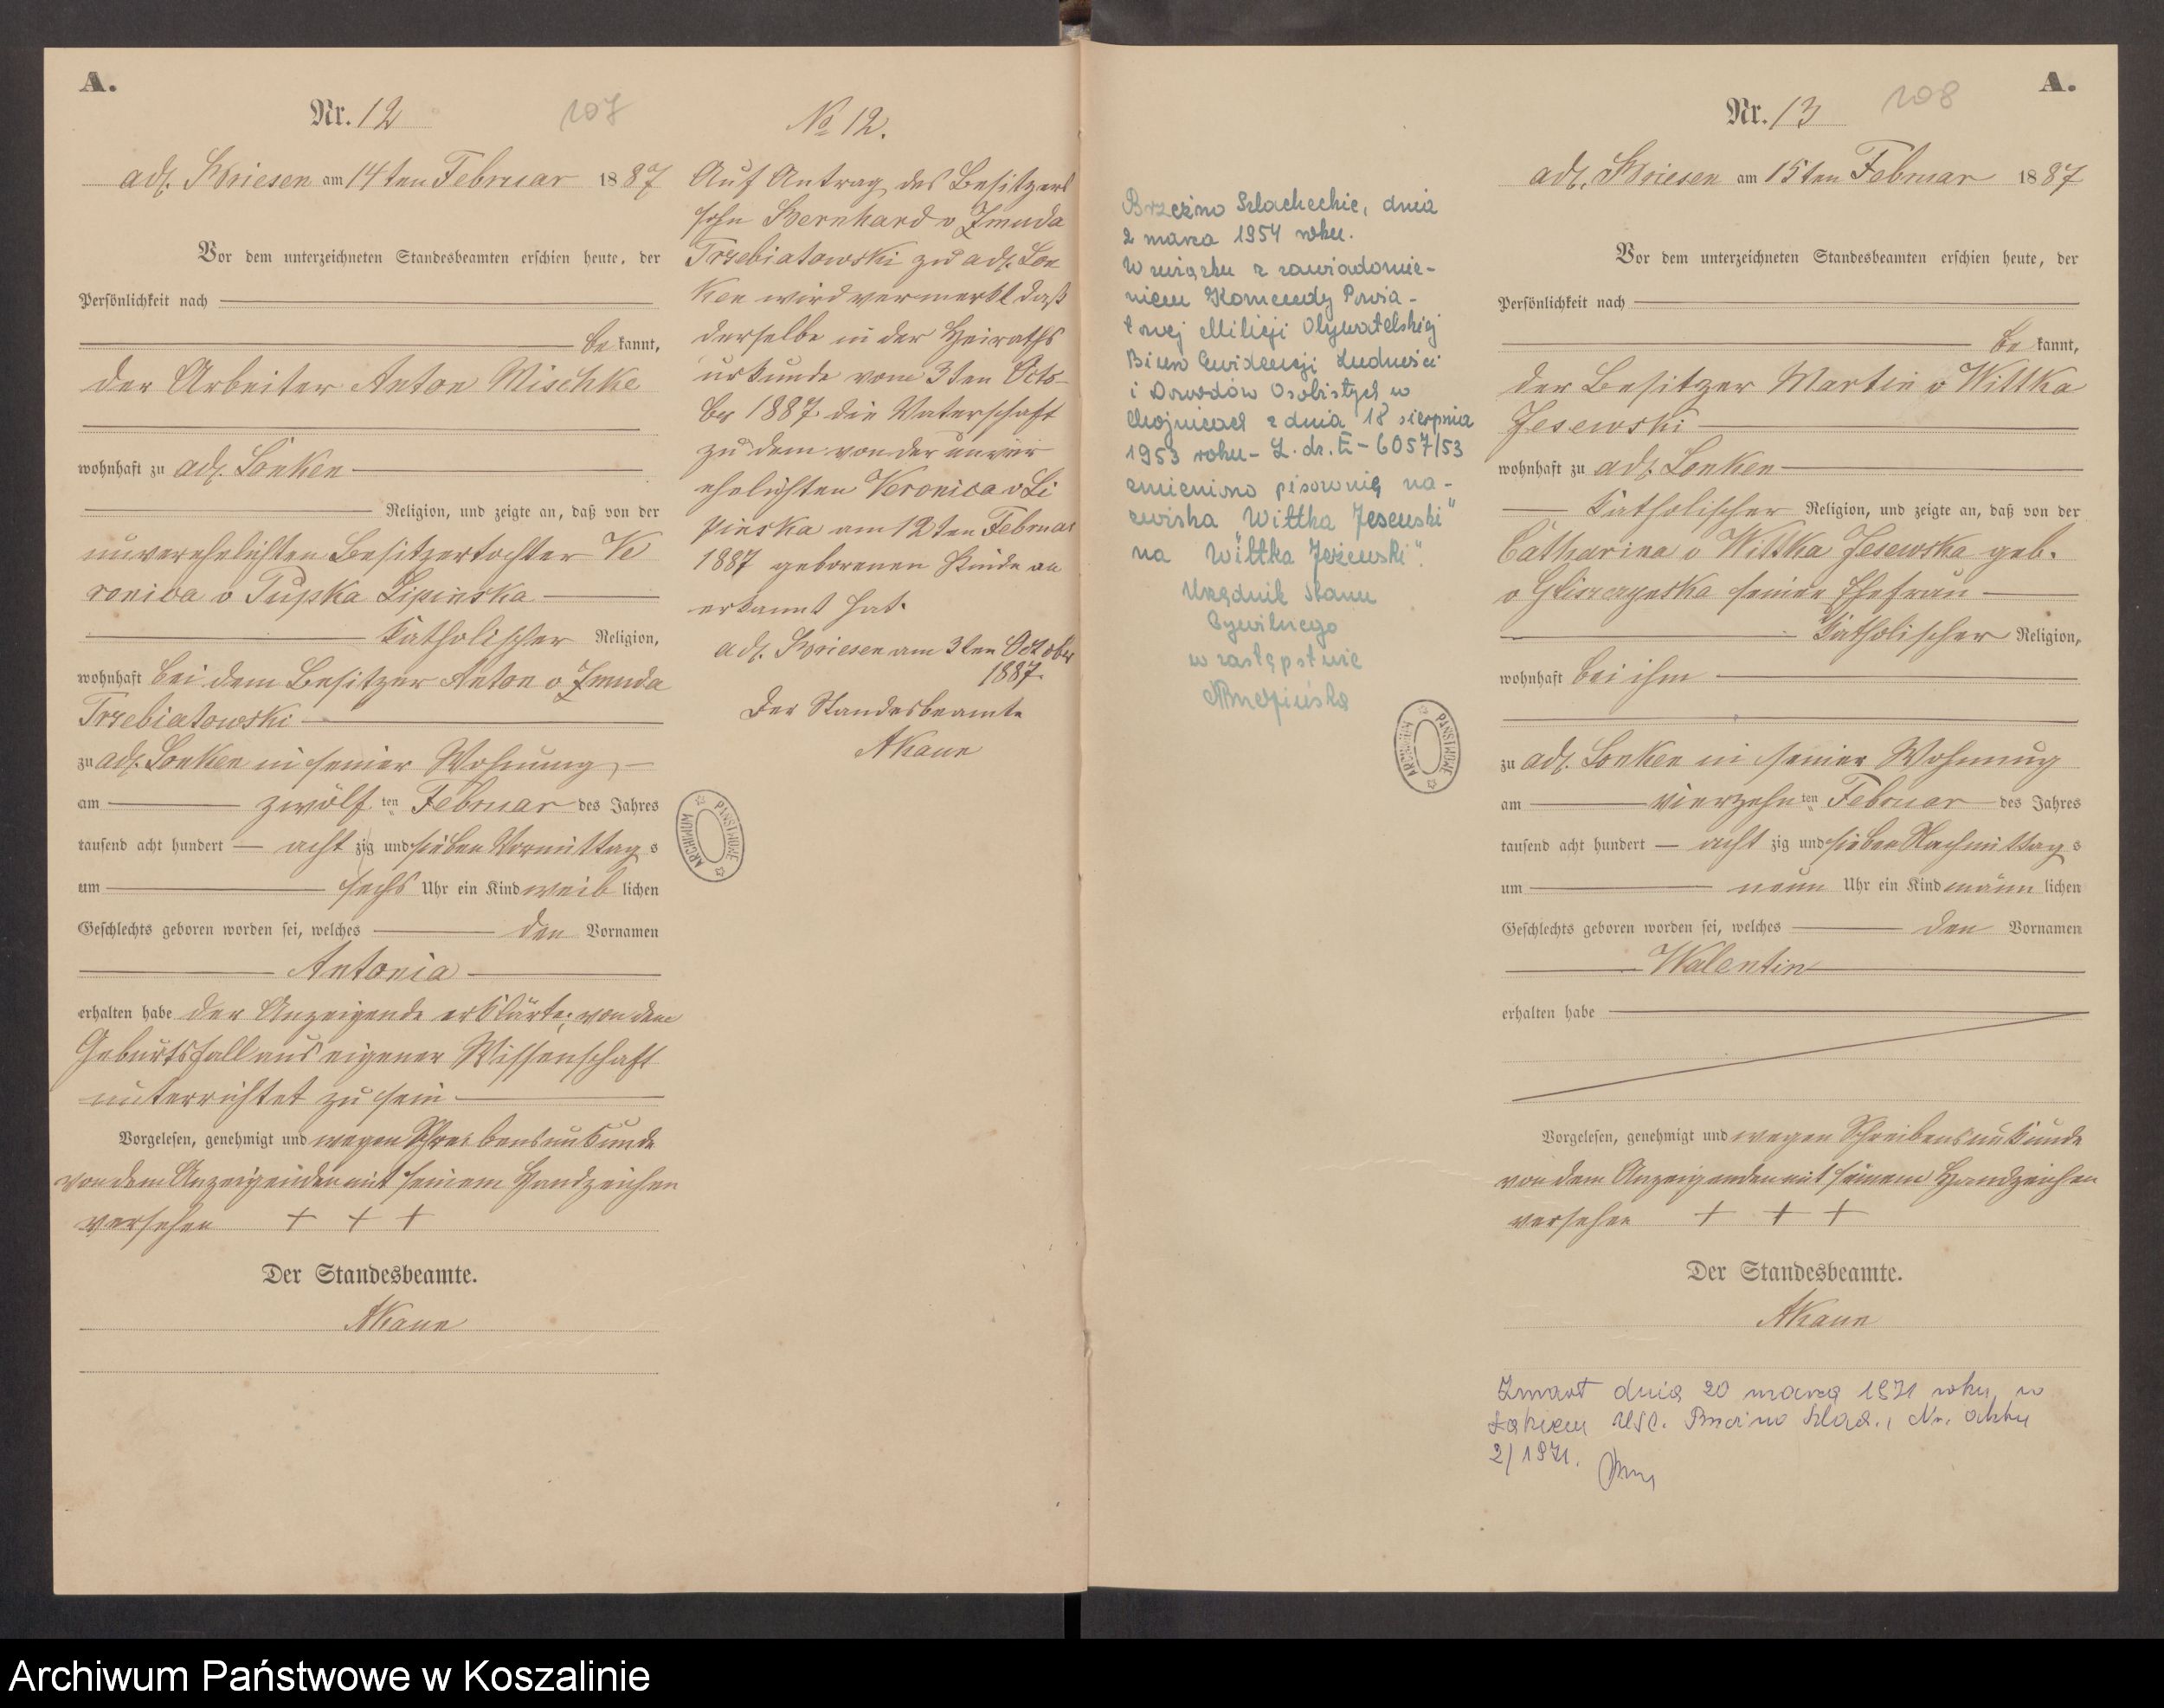 A.
Nr. 12
107
adl. Briesen am 14ten Februar 1887
Vor dem unterzeichneten Standesbeamten erschien heute, der
Persönlichkeit nach
be kannt,
der Arbeiter Anton Mischke
wohnhaft zu adl. Lonken
Religion, und zeigte an, daß von der
unverehelichten Besitzertochter Ve
ronica v Pupka Lipinska
katholischer Religion,
wohnhaft bei dem Besitzer Anton v Zmuda
Trzebiatowski
zu adl. Lonken in seiner Wohnung,
am zwölf ten Februar des Jahres
tausend acht hundert acht zig und sieben Vormittag s
um sechs Uhr ein Kind weib lichen
Geschlechts geboren worden sei, welches den Vornamen
Antonia
erhalten habe der Anzeigende erklärte, von dem
Geburtsfall aus eigener Wissenschaft
unterrichtet zu sein
Vorgelesen, genehmigt und wegen Schreibensunkunde
von dem Anzeigenden mit seinem Handzeichen
versehen + + +
Der Standesbeamte.
AKaun
No 12.
Auf Antrag des Besitzers
sohn Bernhard v Zmuda
Trzebiatowski zu adl. Lon
ken wird vermerkt daß
derselbe in der Heiraths
urkunde vom 3ten Octo-
ber 1887 die Vaterschaft
zu dem von der unver
ehelichten Veronica v Li
pinska am 12ten Februar
1887 geborenen Kinde an
erkannt hat.
adl. Briesen am 3ten October
1887.
Der Standesbeamte
AKaun
ARCHIWUM PAŃSTWOWE
Brzeźno Szlacheckie, dnia
2 marca 1954 roku.
W związku z zawiadomie-
niem Komendy Powia-
towej Milicji Obywatelskiej
Biuro Ewidencji Ludności
i Dowodów Osobistych w
Chojnicach z dnia 18 sierpnia
1953 roku - L. dz. E-6057/53
zmieniono pisownię na-
zwiska "Wittka Jesewski"
na "Wittka Jeżewski".
Urzędnik Stanu
Cywilnego
w zastępstwie
ARCHIWUM PAŃSTWOWE
A.
Nr. 13
108
adl. Briesen am 15ten Februar 1887
Vor dem unterzeichneten Standesbeamten erschien heute, der
Persönlichkeit nach
be kannt,
der Besitzer Martin v Wittka
Jesewski
wohnhaft zu adl. Lonken
katholischer Religion, und zeigte an, daß von der
Catharina v Wittka Jesewska geb.
v Gliszczynska seiner Ehefrau
katholischer Religion,
wohnhaft bei ihm
zu adl. Lonken in seiner Wohnung
am vierzehn ten Februar des Jahres
tausend acht hundert acht zig und sieben Nachmittag s
um neun Uhr ein Kind männ lichen
Geschlechts geboren worden sei, welches den Vornamen
Walentin
erhalten habe
Vorgelesen, genehmigt und wegen Schreibensunkunde
von dem Anzeigenden mit seinem Handzeichen
versehen + + +
Der Standesbeamte.
AKaun
Zmarł dnia 20 marca 1971 roku, w
Łąkiem USC. Brzeźno Szlach., Nr. aktu
2/1971.
Archiwum Państwowe w Koszalinie